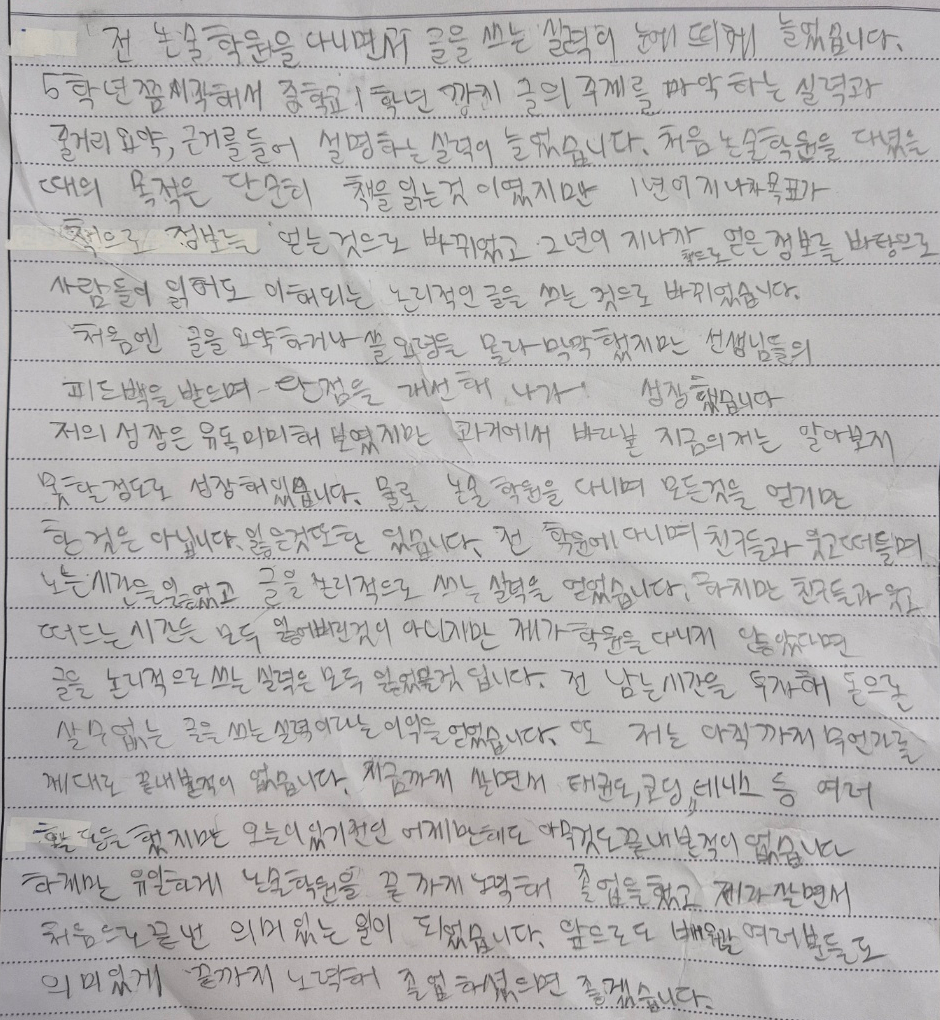 전 논술학원을 다니면서 글을 쓰는 실력이 눈에 띄게 늘었습니다.
5학년쯤 시작해서 중학교 1학년 까지 글의 주제를 파악 하는 실력과
줄거리 요약, 근거를 들어 설명하는 실력이 늘었습니다. 처음 논술학원을 다녔을
때의 목적은 단순히 책을 읽는것 이였지만 1년이 지나자 목표가
책으로 정보를 얻는 것으로 바뀌었고 2년이 지나자 책으로 얻은 정보를 바탕으로
사람들이 읽어도 이해되는 논리적인 글을 쓰는 것으로 바뀌었습니다.
처음엔 글을 요약하거나 쓸 요령을 몰라 막막했지만 선생님들의
피드백을 받으며 단점을 개선해 나가 성장했습니다
저의 성장은 유독 미미해 보였지만 과거에서 바라본 지금의 저는 알아보지
못할정도로 성장해있습니다. 물론 논술 학원을 다니며 모든것을 얻기만
한 것은 아닙니다. 잃은것또한 있습니다. 전 학원에 다니며 친구들과 웃고 떠들며
노는 시간을 잃었고 글을 논리적으로 쓰는 실력을 얻었습니다. 하지만 친구들과 웃고
떠드는 시간을 모두 잃어버린것이 아니지만 제가 학원을 다니지 않았다면
글을 논리적으로 쓰는 실력은 모두 잃었을것 입니다. 전 남는 시간을 투자해 돈으로
살 수 없는 글을 쓰는 실력이라는 이익을 얻었습니다. 또 저는 아직까지 무언가를
제대로 끝내본적이 없습니다. 지금까지 살면서 태권도, 코딩, 테니스 등 여러
활동을 했지만 오늘이 있기 전인 어제만해도 아무것도 끝내본적이 없습니다
하지만 유일하게 논술학원을 끝까지 노력해 졸업을 했고 제가 살면서
처음으로 끝낸 의미있는 일이 되었습니다. 앞으로도 배워갈 여러분들도
의미있게 끝까지 노력해 졸업 하셨으면 좋겠습니다.